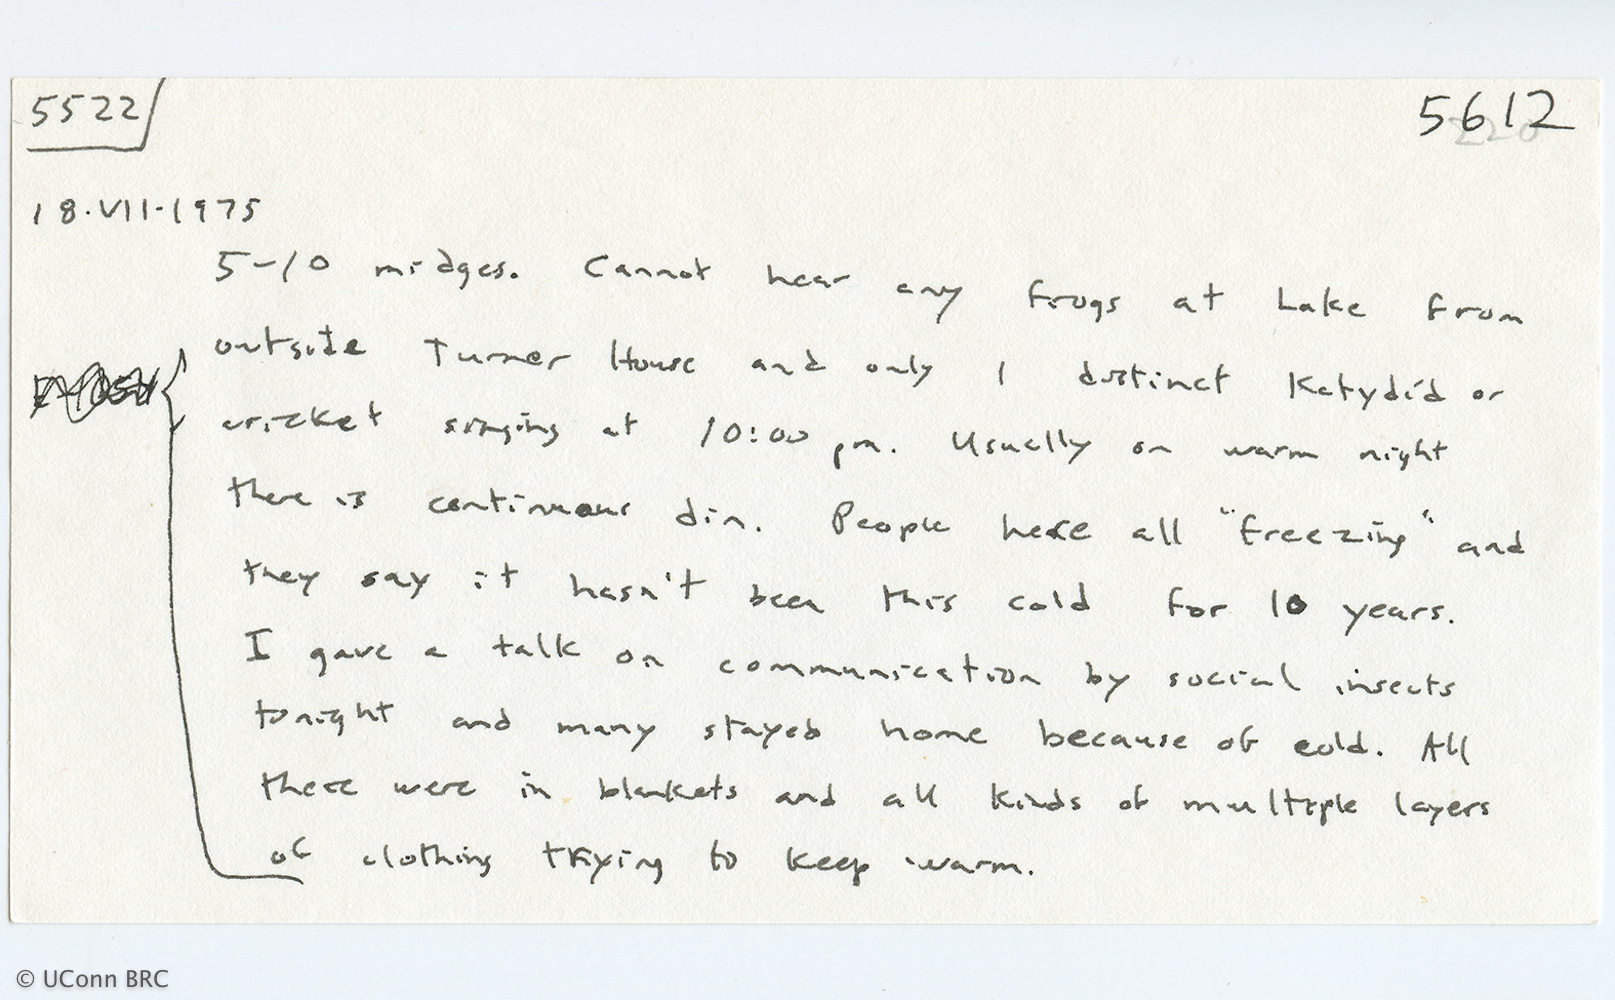 5522
5612
18·VII·1975
5-10 midges. Cannot hear any frogs at Lake from
outside Turner House and only 1 distinct Katydid or
cricket singing at 10:00 pm. Usually on warm night
there is continuous din. People here all "freezing" and
they say it hasn't been this cold for 10 years.
I gave a talk on communication by social insects
tonight and many stayed home because of cold. All
there were in blankets and all kinds of multiple layers
of clothing trying to keep warm.
© UConn BRC